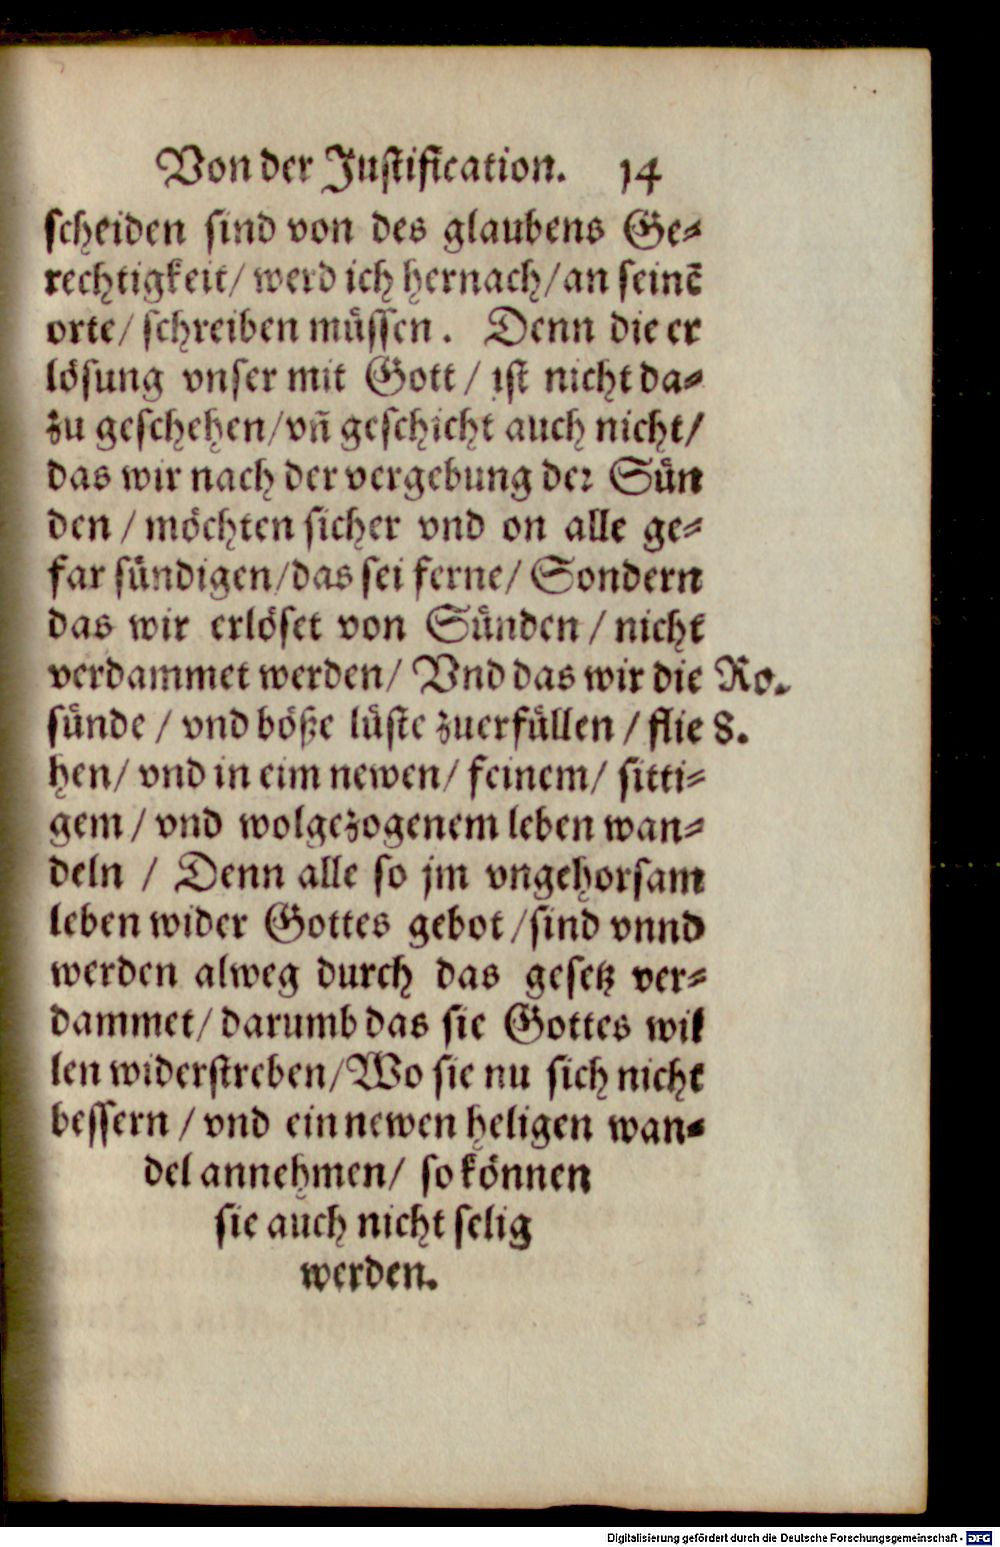 Von der Justification. 14
scheiden sind von des glaubens Ge⸗
rechtigkeit/ werd ich hernach/ an seinē
orte/ schreiben müssen. Denn die er
lösung vnser mit Gott/ ist nicht da⸗
zu geschehen/ vn̄ geschicht auch nicht/
das wir nach der vergebung der Sün
den/ möchten sicher vnd on alle ge⸗
far sündigen/ das sei ferne/ Sondern
das wir erlöset von Sünden/ nicht
verdammet werden/ Vnd das wir die Ro.
sünde/ vnd böße lüste zuerfüllen/ flie 8.
hen/ vnd in eim newen/ feinem/ sitti⸗
gem/ vnd wolgezogenem leben wan⸗
deln/ Denn alle so jm vngehorsam
leben wider Gottes gebot/ sind vnnd
werden alweg durch das gesetz ver⸗
dammet/ darumb das sie Gottes wil
len widerstreben/ Wo sie nu sich nicht
bessern/ vnd ein newen heligen wan⸗
del annehmen/ so können
sie auch nicht selig
werden.
Digitalisierung gefördert durch die Deutsche Forschungsgemeinschaft - DFG